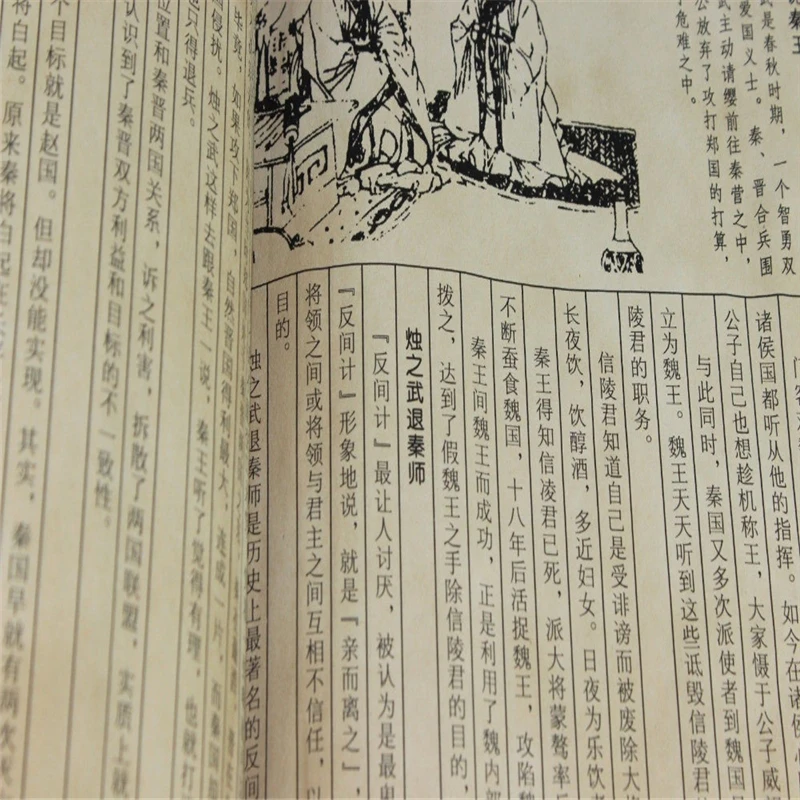 秦王
武是春秋时期，一个智勇双
爱国义士。秦、晋合兵围
武主动请缨前往秦营之中，
公放弃了攻打郑国的打算，
于危难之中。
诸侯国都听从他的指挥。如今在诸侯
公子自己也想趁机称王，大家慑于公子威
与此同时，秦国又多次派使者到魏国
立为魏王。魏王天天听到这些诋毁信陵君
陵君的职务。
信陵君知道自己是受诽谤而被废除大
长夜饮，饮醇酒，多近妇女。日夜为乐饮
秦王得知信凌君已死，派大将蒙骜率
不断蚕食魏国，十八年后活捉魏王，攻陷魏
秦王间魏王而成功，正是利用了魏内部
拨之，达到了假魏王之手除信陵君的目的，
烛之武退秦师
『反间计』最让人讨厌，被认为是最卑
『反间计』形象地说，就是『亲而离之』，
将领之间或将领与君主之间互相不信任，以
目的。
烛之武退秦师是历史上最著名的反间
如果攻下郑国，自然晋国得利够大，连成一片，而秦国
侵扰。烛之武这样去跟秦王一说，秦王听了觉得有理，也就打
也只得退兵。
位置和秦晋两国关系，诉之利害，拆散了两国联盟，实质上就
认识到了秦晋双方利益和目标的不一致性。
个目标就是赵国。但却没能实现。其实，秦国早就有两次
将白起。原来秦将白起